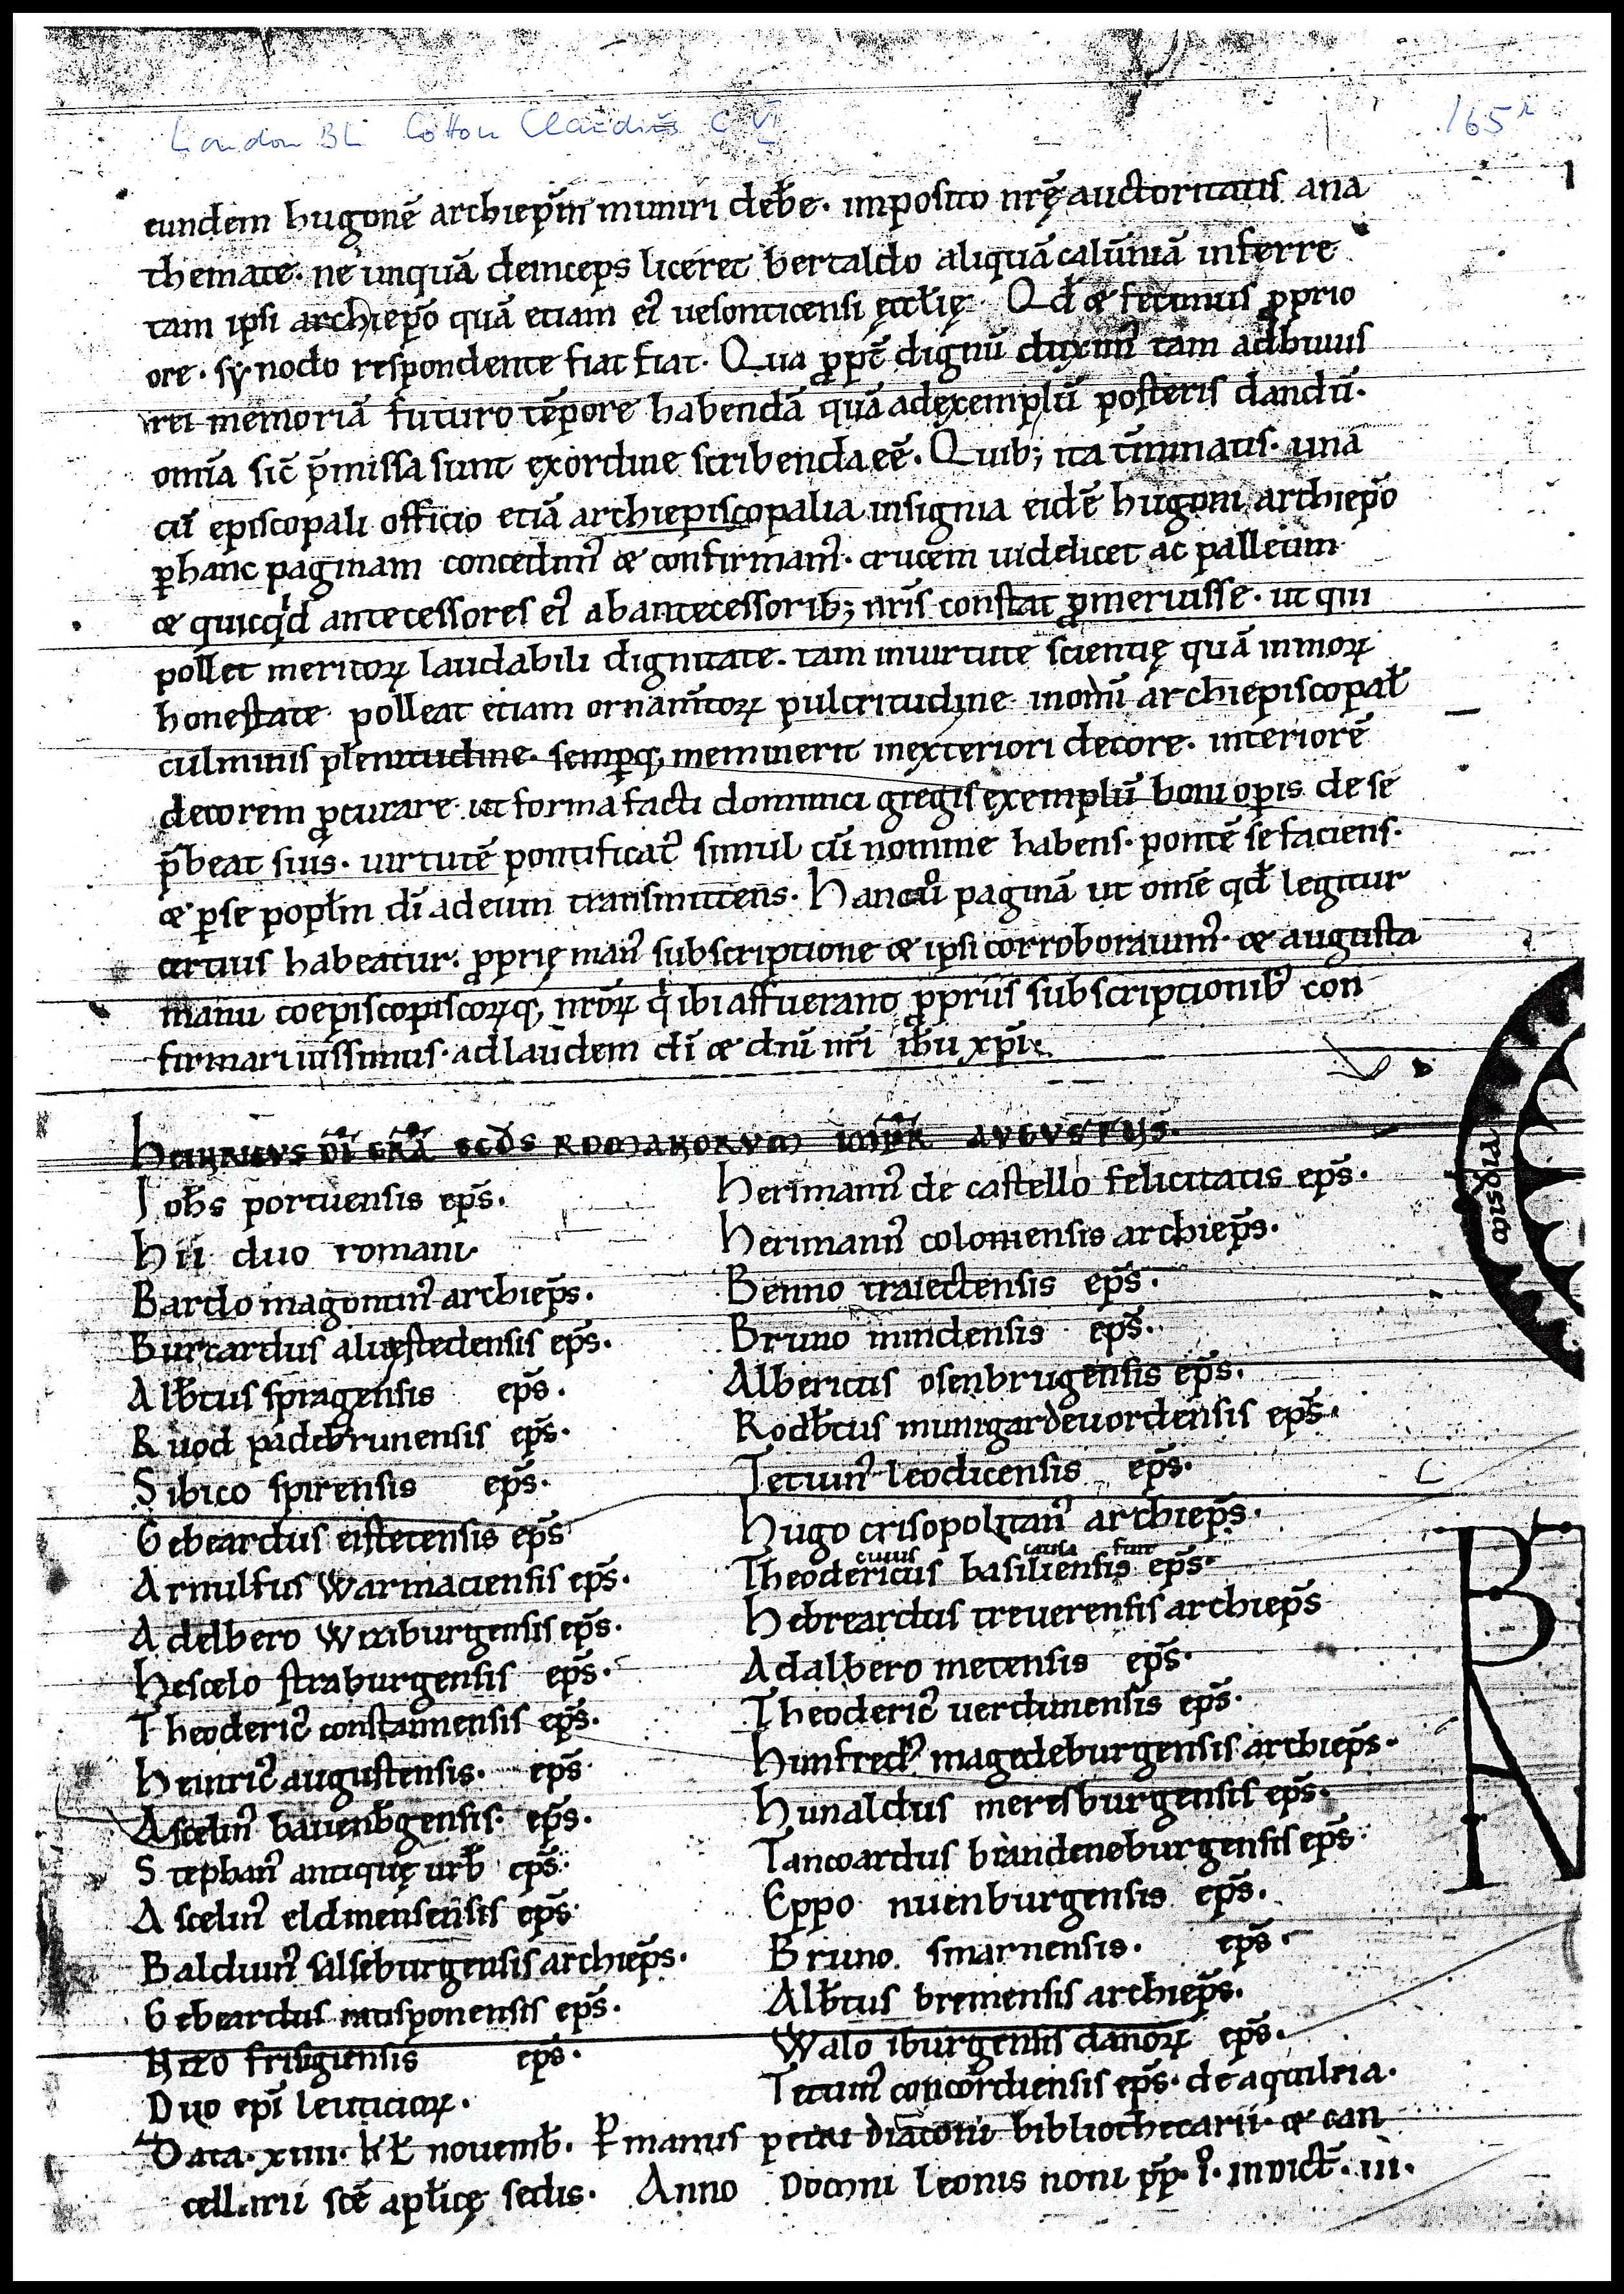 London BL Cotton Claudius C VI
165r
eundem hugonē archiep̄m muniri deb̄e. imposito nr̄ę auctoritatis ana
themate. ne unquā deinceps liceret bertaldo aliquā calūniā inferre
tam ipsi archiep̄o quā etiam ei' uesonticensi ęccl̄ię. Qd̄ & fecimus ꝓprio
ore. synodo respondente fiat fiat. Qua ꝓpt̄ dignū duxim' tam adhuius
rei memoriā futuro tēpore habendā quā adexemplū posteris dandū.
omīa sic̄ p̄missa sunt exordine scribenda eē. Quib; ita t̄minatis. una
cū episcopali officio etiā archiepiscopalia insignia eidē hugoni archiep̄o
ꝑhanc paginam concedim' & confirmam'. crucem uidelicet ac palleum
& quicqd antecessores ei' abantecessorib; nr̄is constat ꝓmeruisse. ut qui
pollet meritoꝝ laudabili dignitate. tam inuirtute scientię quā inmoꝝ
honestate polleat etiam ornam̄toꝝ pulcritudine inomī archiepiscopal̄
culminis plenitudine. semꝑq; meminerit inexteriori decore. interiorē
decorem ꝓcurare ut forma facti dominici gregis exemplū boni oꝑis de se
p̄beat suis. uirtutē pontificat' simul cū nomine habens. pontē se faciens.
& ꝑse popl̄m dī adeum transmittens. Hanc u° paginā ut om̄e qd̄ legitur
certius habeatur. ꝓprię man' subscriptione & ipsi corroborauim' & augusta
manu coepiscopiscoꝝq; nr̄oꝝ qi ibi affuerant ꝓpriis subscriptionib' con
firmari iussimus. adlaudem dī & dn̄i nr̄i ih̄u xp̄i.
Heinricvs dī gr̄a scd̄s romanorvm imp̄r avgvstvs.
Ioh̄s portuensis ep̄s.
Hii duo romani
Bardo magontin' archiep̄s.
Burcardus aluestedensis ep̄s.
Alb̄tus spragensis ep̄s.
Ruod padeb̄runensis ep̄s.
Sibico spirensis ep̄s.
Gebeardus eistetensis ep̄s
Arnulfus Warmaciensis ep̄s.
Adelbero Wirziburgensis ep̄s.
Hescelo straburgensis ep̄s.
Theoderic' constanniensis ep̄s.
Heinric' augustensis. ep̄s
Ascelin' bauenb̄gensis. ep̄s.
Stephan' antiquę urb̄ ep̄s.
Ascelin' eldinensensis ep̄s
Balduin' salseburgensis archiep̄s.
Gebeardus ratisponensis ep̄s.
Nizo frisigiensis ep̄s.
Duo ep̄i leuticioꝝ.
Herimann' de castello felicitatis ep̄s.
Herimann' coloniensis archiep̄s.
Benno traiectensis ep̄s.
Bruno mindensis ep̄s.
Albericus osenbrugensis ep̄s.
Rodb̄tus munigardeuordensis ep̄s.
Tetuin' leodicensis ep̄s.
Hugo crisopolitan' archiep̄s.
cuius causa fuit
Theodericus basiliensis ep̄s.
Hebreardus treuerensis archiep̄s
Adalbero metensis ep̄s.
Theoderic' uerdunensis ep̄s.
Hunfred' magedeburgensis archiep̄s.
Hunaldus meresburgensis ep̄s.
Tancoardus brandeneburgensis ep̄s.
Eppo nuenburgensis ep̄s.
Bruno smarnensis. ep̄s.
Alb̄tus bremensis archiep̄s.
Walo iburgensis danoꝝ ep̄s.
Tetuin' concordiensis ep̄s. de aquileia.
Data. xiiii. kl̄ nouemb̄. Ꝑ manus petri diaconi bibliothecarii. & can
cellarii scē apl̄icę sedis. Anno Domni leonis noni p̄p. i°. indict̄. iii.